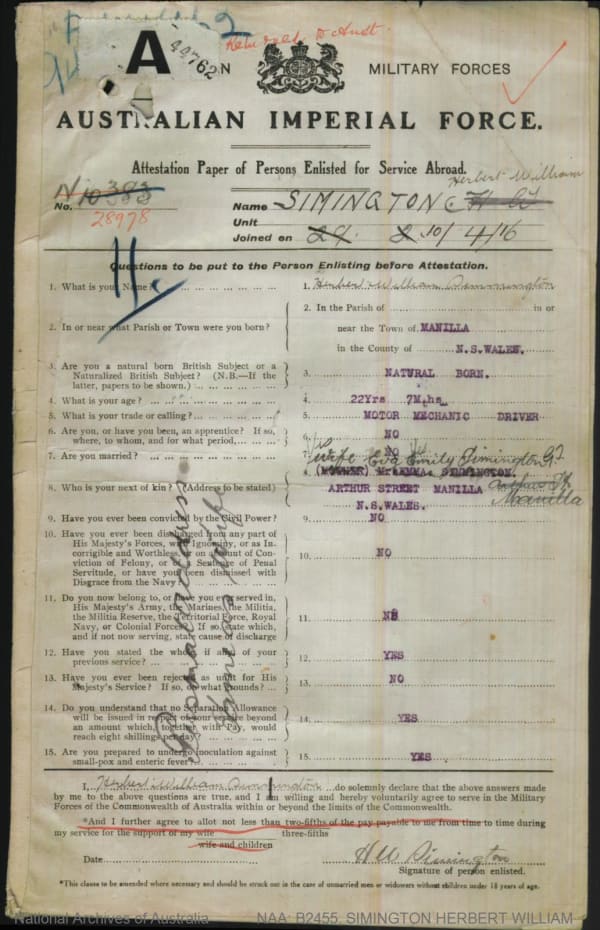 A
44762
N MILITARY FORCES
AUSTRALIAN IMPERIAL FORCE.
Attestation Paper of Persons Enlisted for Service Abroad.
Herbert William
No. 28978
Name SIMINGTON
Unit
Joined on 10/4/16
Questions to be put to the Person Enlisting before Attestation.
1. What is your Name? 1. Herbert William Simmington
2. In or near what Parish or Town were you born? 2. In the Parish of in or
near the Town of MANILLA
in the County of N.S.WALES.
3. Are you a natural born British Subject or a Naturalized British Subject? (N.B.—If the latter, papers to be shown.) 3. NATURAL BORN.
4. What is your age? 4. 22Yrs 7Mths
5. What is your trade or calling? 5. MOTOR MECHANIC DRIVER
6. Are you, or have you been, an apprentice? If so, where, to whom, and for what period 6. NO
7. Are you married? 7. NO
Wife Eva Emily Simington
8. Who is your next of kin? (Address to be stated) 8. (MOTHER) Mrs EMMA SIMMINGTON.
ARTHUR STREET MANILLA Arthur St
N.S.WALES. Manilla
9. Have you ever been convicted by the Civil Power? 9. NO
10. Have you ever been discharged from any part of His Majesty's Forces, with Ignominy, or as Incorrigible and Worthless, or on account of Conviction of Felony, or of a Sentence of Penal Servitude, or have you been dismissed with Disgrace from the Navy? 10. NO
11. Do you now belong to, or have you ever served in, His Majesty's Army, the Marines, the Militia, the Militia Reserve, the Territorial Force, Royal Navy, or Colonial Forces? If so, state which, and if not now serving, state cause of discharge 11. NO
12. Have you stated the whole, if any, of your previous service? 12. YES
13. Have you ever been rejected as unfit for His Majesty's Service? If so, on what grounds? 13. NO
14. Do you understand that no Separation Allowance will be issued in respect of your service beyond an amount which, together with Pay, would reach eight shillings per day? 14. YES
15. Are you prepared to undergo inoculation against small-pox and enteric fever? 15. YES
I, Herbert William Simmington do solemnly declare that the above answers made
by me to the above questions are true, and I am willing and hereby voluntarily agree to serve in the Military
Forces of the Commonwealth of Australia within or beyond the limits of the Commonwealth.
*And I further agree to allot not less than two-fifths of the pay payable to me from time to time during
three-fifths
my service for the support of my wife
wife and children
Date
H W Simington
Signature of person enlisted.
*This clause to be amended where necessary and should be struck out in the case of unmarried men or widowers without children under 18 years of age.
National Archives of Australia NAA: B2455, SIMINGTON HERBERT WILLIAM